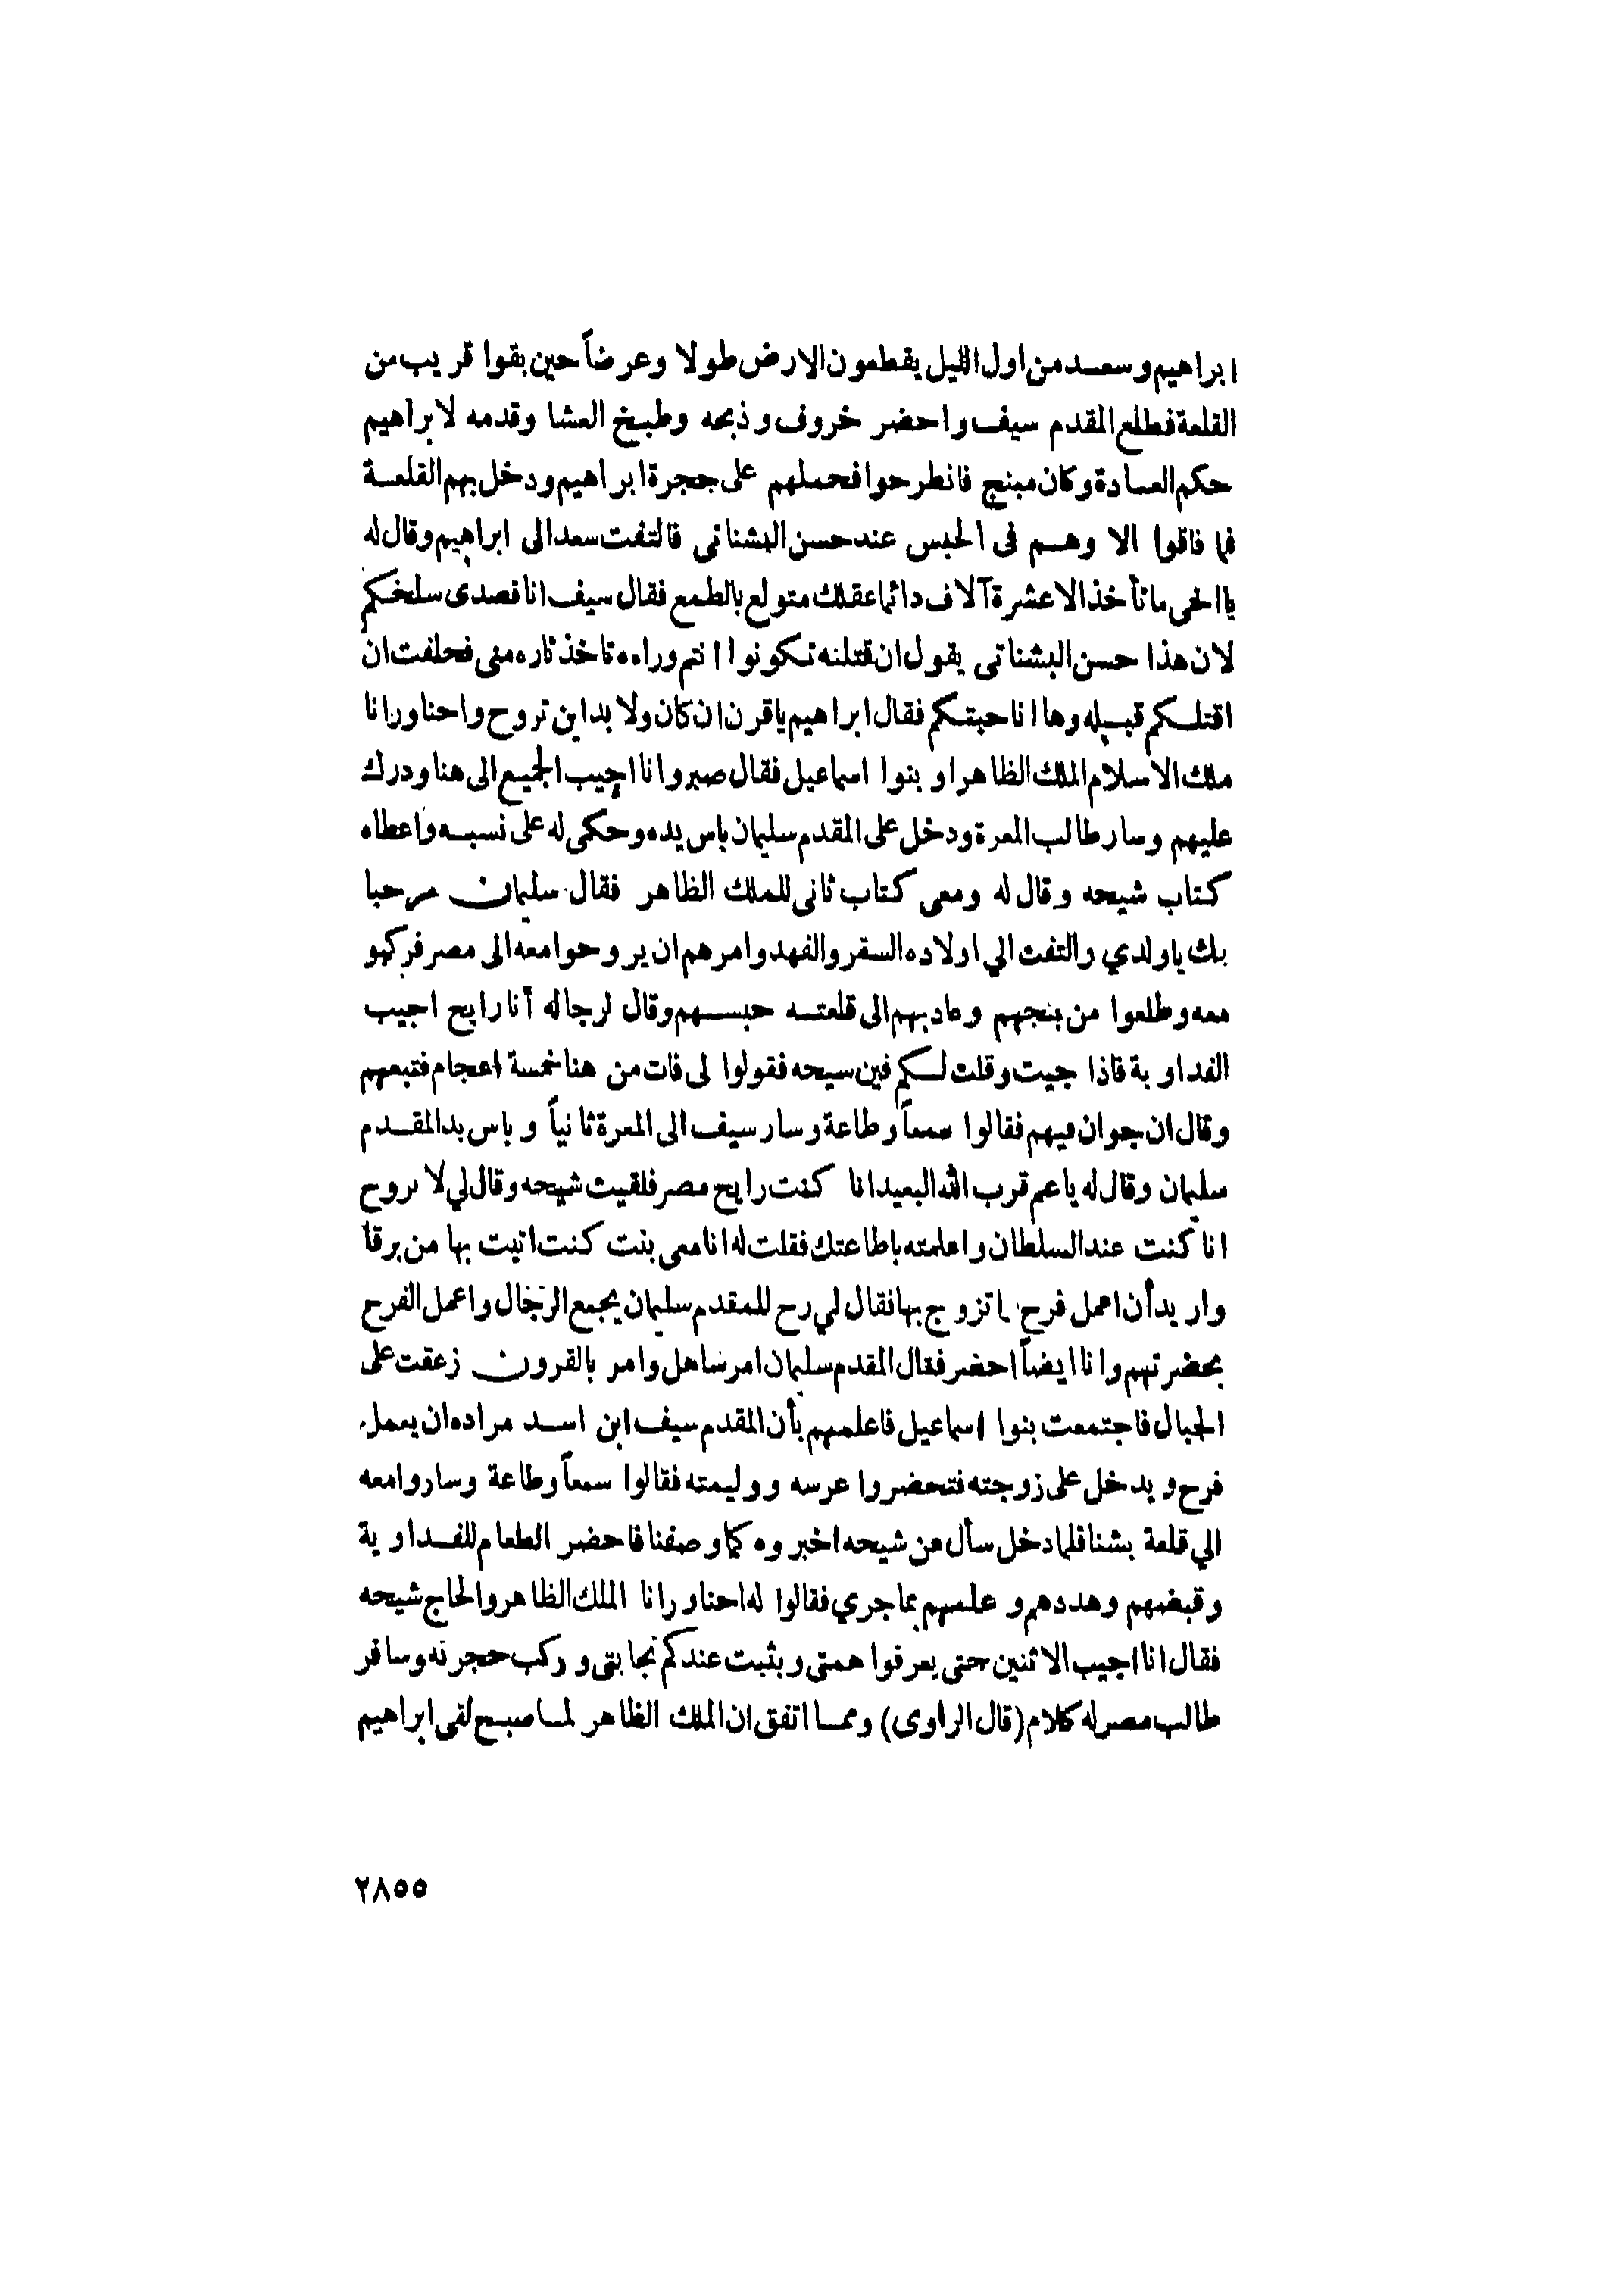 ابراهيم وسعد من اول الليل يقطعون الارض طولا وعرضاً حين بقوا قريب من
القلعة فطلع المقدم سيف واحضر خروف وذبحه وطبخ العشا وقدمه لابراهيم
حكم العادة وكان مبنج فانطرحوا فحملهم على حجرة ابراهيم ودخل بهم القلعة
فما فاقوا الا وهم فى الحبس عند حسن البشناتى فالتفت سعد الى ابراهيم وقال له
يا اخى ما تأخذ الا عشرة آلاف دائما عقلك متولع بالطمع فقال سيف انا قصدى سلخكم
لان هذا حسن البشناتى يقول ان قتلته تكونوا انتم وراءه تاخذ ثاره منى فحلفت ان
اقتلكم قبله وها انا حبتكم فقال ابراهيم ياقرن ان كان ولا بد اين تروح واحنا ورانا
ملك الاسلام الملك الظاهر او بنوا اسماعيل فقال صبروا انا اجيب الجميع الى هنا ودرك
عليهم وسار طالب المعرة ودخل على المقدم سليمان باس يده وحكى له على نسبه واعطاه
كتاب شيحه وقال له ومعى كتاب ثانى للملك الظاهر فقال سليمان مرحبا
بك ياولدي والتفت الي اولاده السقر والفهد وامرهم ان يروحوا معه الى مصر فركبو
معه وطلعوا من بنجهم وعاد بهم الى قلعته حبسهم وقال لرجاله أنا رايح اجيب
الفداوية فاذا جيت وقلت لكم فين سيحه فقولوا لى فات من هنا خمسة اعجام فتبعهم
وقال ان جوان فيهم فقالوا سمعاً وطاعة وسار سيف الى المعرة ثانياً وباس يد المقدم
سليمان وقال له ياعم قرب الله البعيد انا كنت رايح مصر فلقيت شيحه وقال لي لا تروح
انا كنت عند السلطان واعلمته باطاعتك فقلت له انا معى بنت كنت اتيت بها من برقا
واريد أن اعمل فرح اتزوج بها فقال لي رح للمقدم سليمان يجمع الرجال واعمل الفرح
بحضرتهم وانا ايضاً احضر فقال المقدم سليمان امر ساهل وامر بالقرون زعقت على
الجبال فاجتمعت بنوا اسماعيل فاعلمهم بأن المقدم سيف ابن اسد مراده ان يعمل
فرح ويدخل على زوجته فتحضروا عرسه ووليمته فقالوا سمعاً وطاعة وساروا معه
الي قلعة بشنا فلما دخل سأل عن شيحه اخبروه كما وصفنا فاحضر الطعام للفداوية
وقبضهم وهددهم وعلمهم بما جري فقالوا له احنا ورانا الملك الظاهر والحاج شيحه
فقال انا اجيب الاثنين حتى يعرفوا همتى ويثبت عندكم نجابتى وركب حجرته وسافر
طالب مصر له كلام (قال الراوى) ومما اتفق ان الملك الظاهر لما صبح لقى ابراهيم
٢٨٥٥